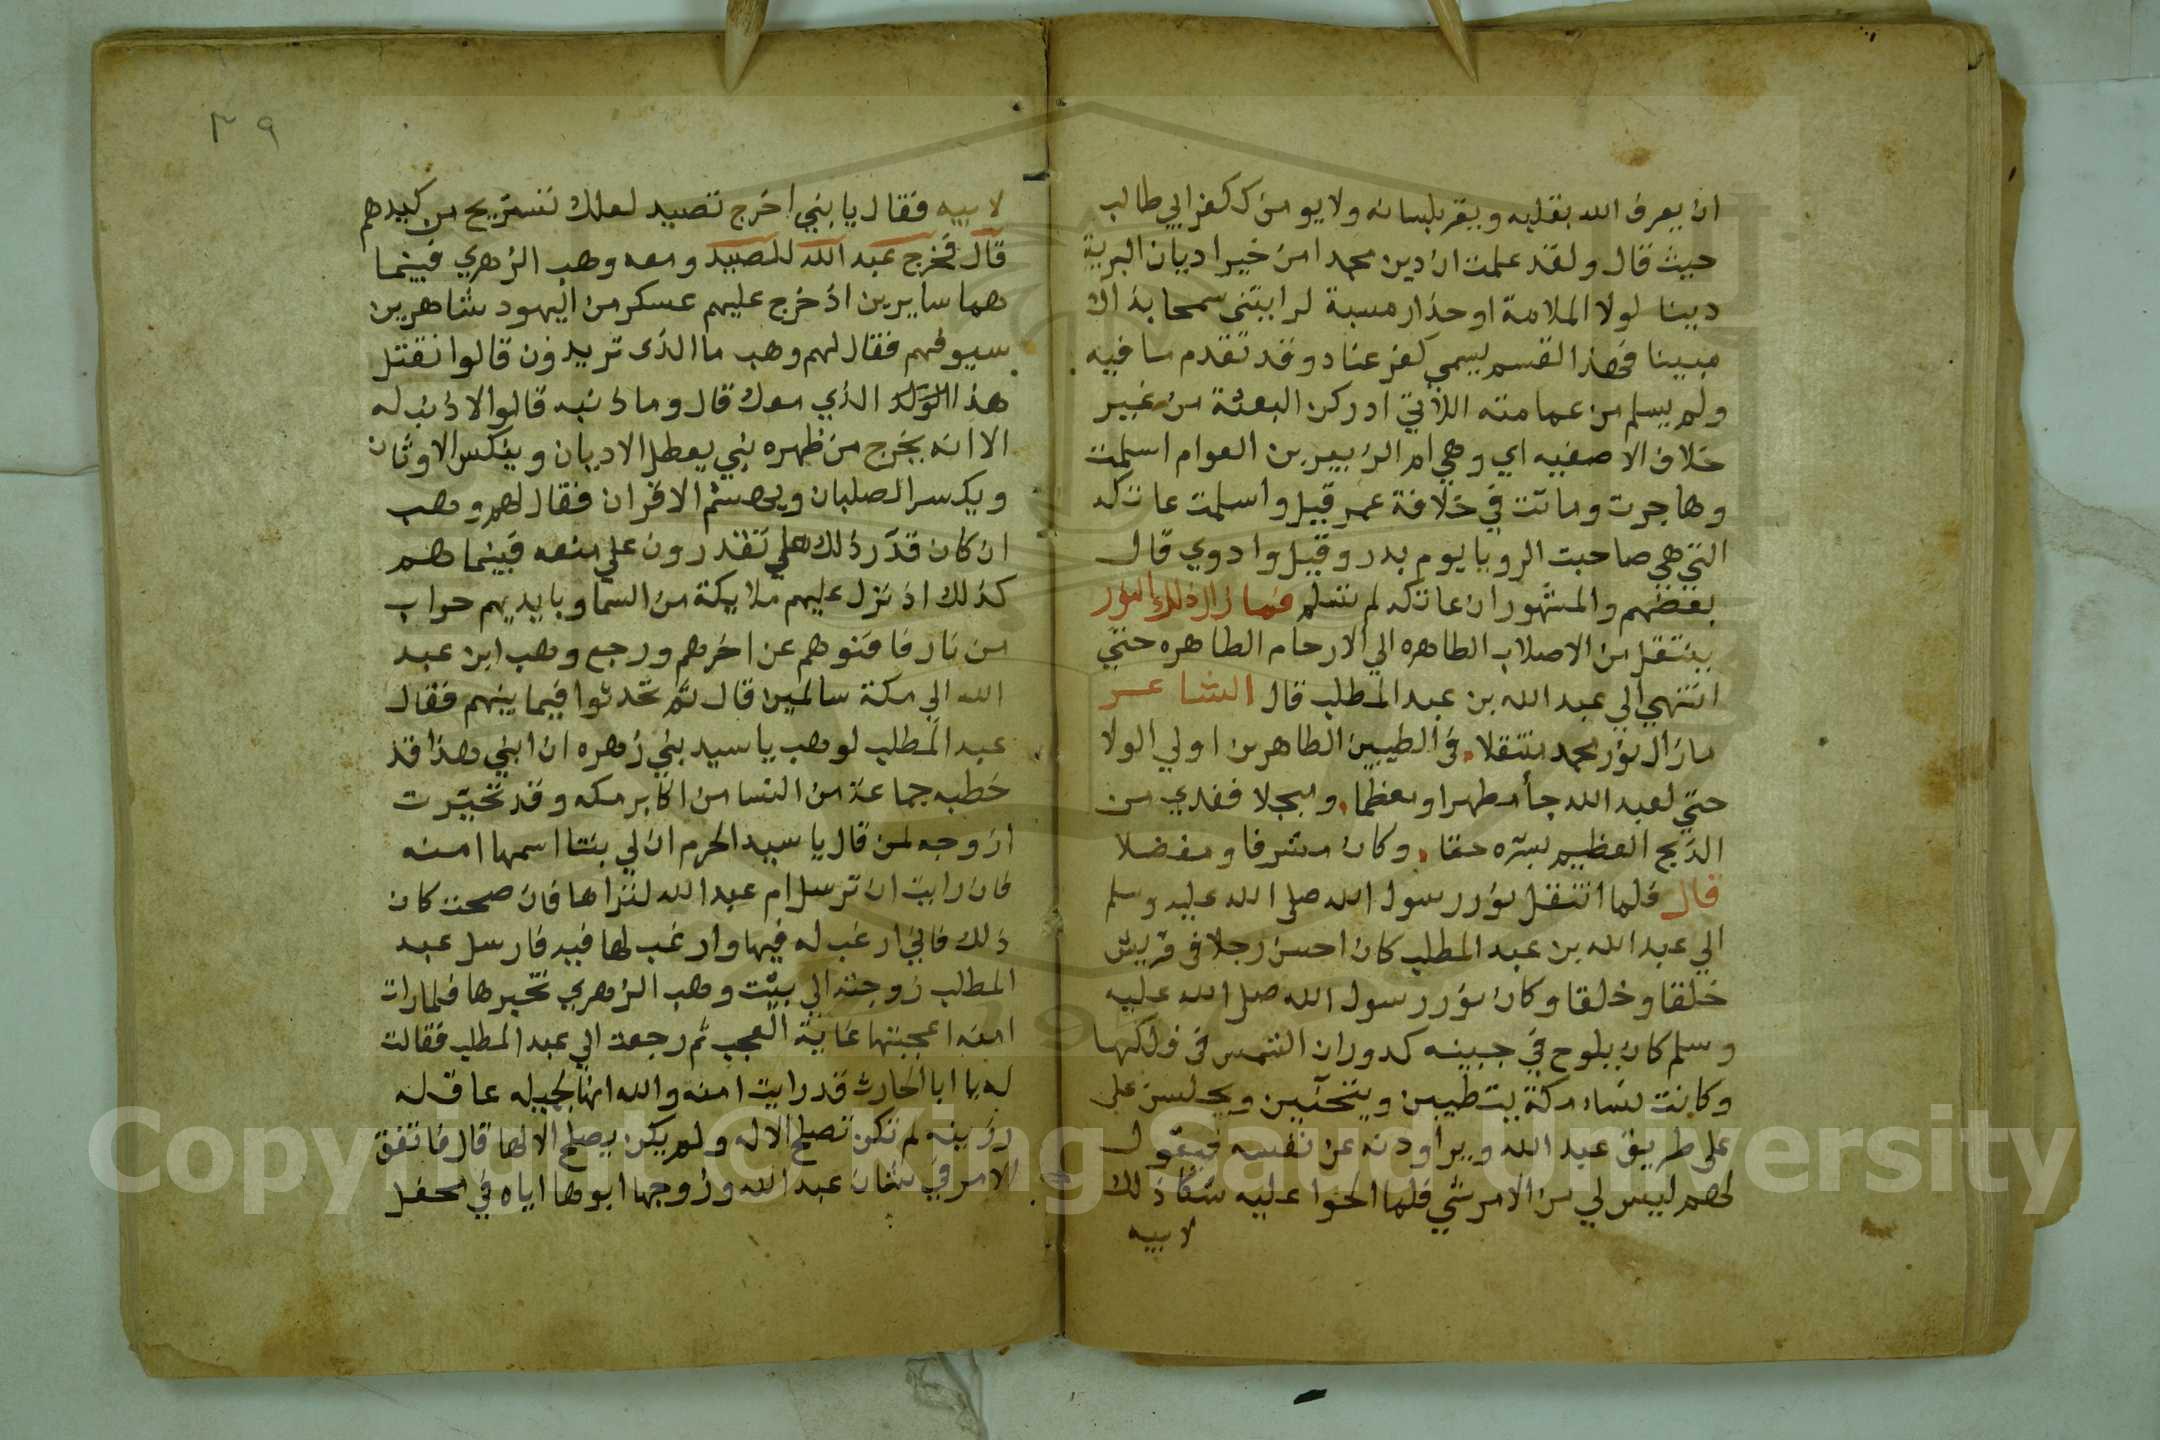 ان يعرف الله بقلبه ويقر بلسانه ولا يومن ككفر ابي طالب
حيث قال ولقد علمت ان دين محمد من خير اديان البرية
دينا لولا الملامة او حذار مسبة لرايتني سمحا بذاك
مبينا فهذا القسم يسمي كفر عناد وقد تقدم ما فيه
ولم يسلم من عماته اللاتي ادركن البعثة من غير
خلاف الا صفيه اي وهي ام الزبير بن العوام اسلمت
وهاجرت وماتت في خلافة عمر قيل واسلمت عاتكه
التي هي صاحبت الرويا يوم بدر وقيل واروي قال
بعضهم والمشهور ان عاتكه لم تسلم فما زال ذلك النور
ينتقل من الاصلاب الطاهره الي الارحام الطاهره حتي
انتهي الي عبد الله بن عبد المطلب قال الشاعر
مازال نور محمد متنقلا في الطيبين الطاهرين اولي الولا
حتي لعبد الله جأ مطهرا ومعظما ومبجلا ففدي من
الذبح العظيم بسره حقا وكان مشرفا ومفضلا
قال فلما انتقل نور رسول الله صلى الله عليه وسلم
الي عبد الله بن عبد المطلب كان احسن رجلا في قريش
خلقا وخلقا وكان نور رسول الله صلى الله عليه
وسلم كان يلوح في جبينه كدوران الشمس في فلكها
وكانت نساء مكة يتطيبن ويتحنين ويجلسن على
على طريق عبد الله ويراودنه عن نفسه فيقول
لهم ليس لي من الامر شي فلما الحوا عليه شكا ذلك
لابيه
٣٩
لابيه فقال يا بني اخرج تصيد لعلك تستريح من كيدهم
قال فخرج عبد الله للصيد ومعه وهب الزهري فبينما
هما سايرين اذ خرج عليهم عسكر من اليهود شاهرين
سيوفهم فقال لهم وهب ما الذى تريدون قالوا نقتل
هذا الولد الذي معك قال وما ذنبه قالوا لا ذنب له
الا انه يخرج من ظهره نبي يعطل الاديان وينكس الاوثان
ويكسر الصلبان ويهشم الاقران فقال لهم وهب
ان كان قدر ذلك هل تقدرون علي منعه فبينما هم
كذلك اذ نزل عليهم ملايكة من السما وبايديهم حراب
من نار فافنوهم عن اخرهم ورجع وهب ابن عبد
الله الي مكة سالمين قال ثم تحدثوا فيما بينهم فقال
عبد المطلب لوهب يا سيد بني زهره ان ابني هذا قد
خطبه جماعة من النسا من اكابر مكه وقد تحيرت
ازوجه لمن قال يا سيد الحرم ان لي بنتا اسمها امنه
فان رايت ان ترسل ام عبد الله لتراها فان صحت كان
ذلك فاني ارغب له فيها وارغب لها فيه فارسل عبد
المطلب زوجته الي بيت وهب الزهري تخبرها فلما رات
امنه اعجبتها غاية العجب ثم رجعت الي عبد المطلب فقالت
له يا ابا الحارث قد رايت امنه والله انها لجميله عاقله
رزينه لم تكن تصلح الا له ولم يكن يصلح الا لها قال فاتفق
الامر في شان عبد الله وزوجها ابوها اياه في محفل
Copyright © King Saud University